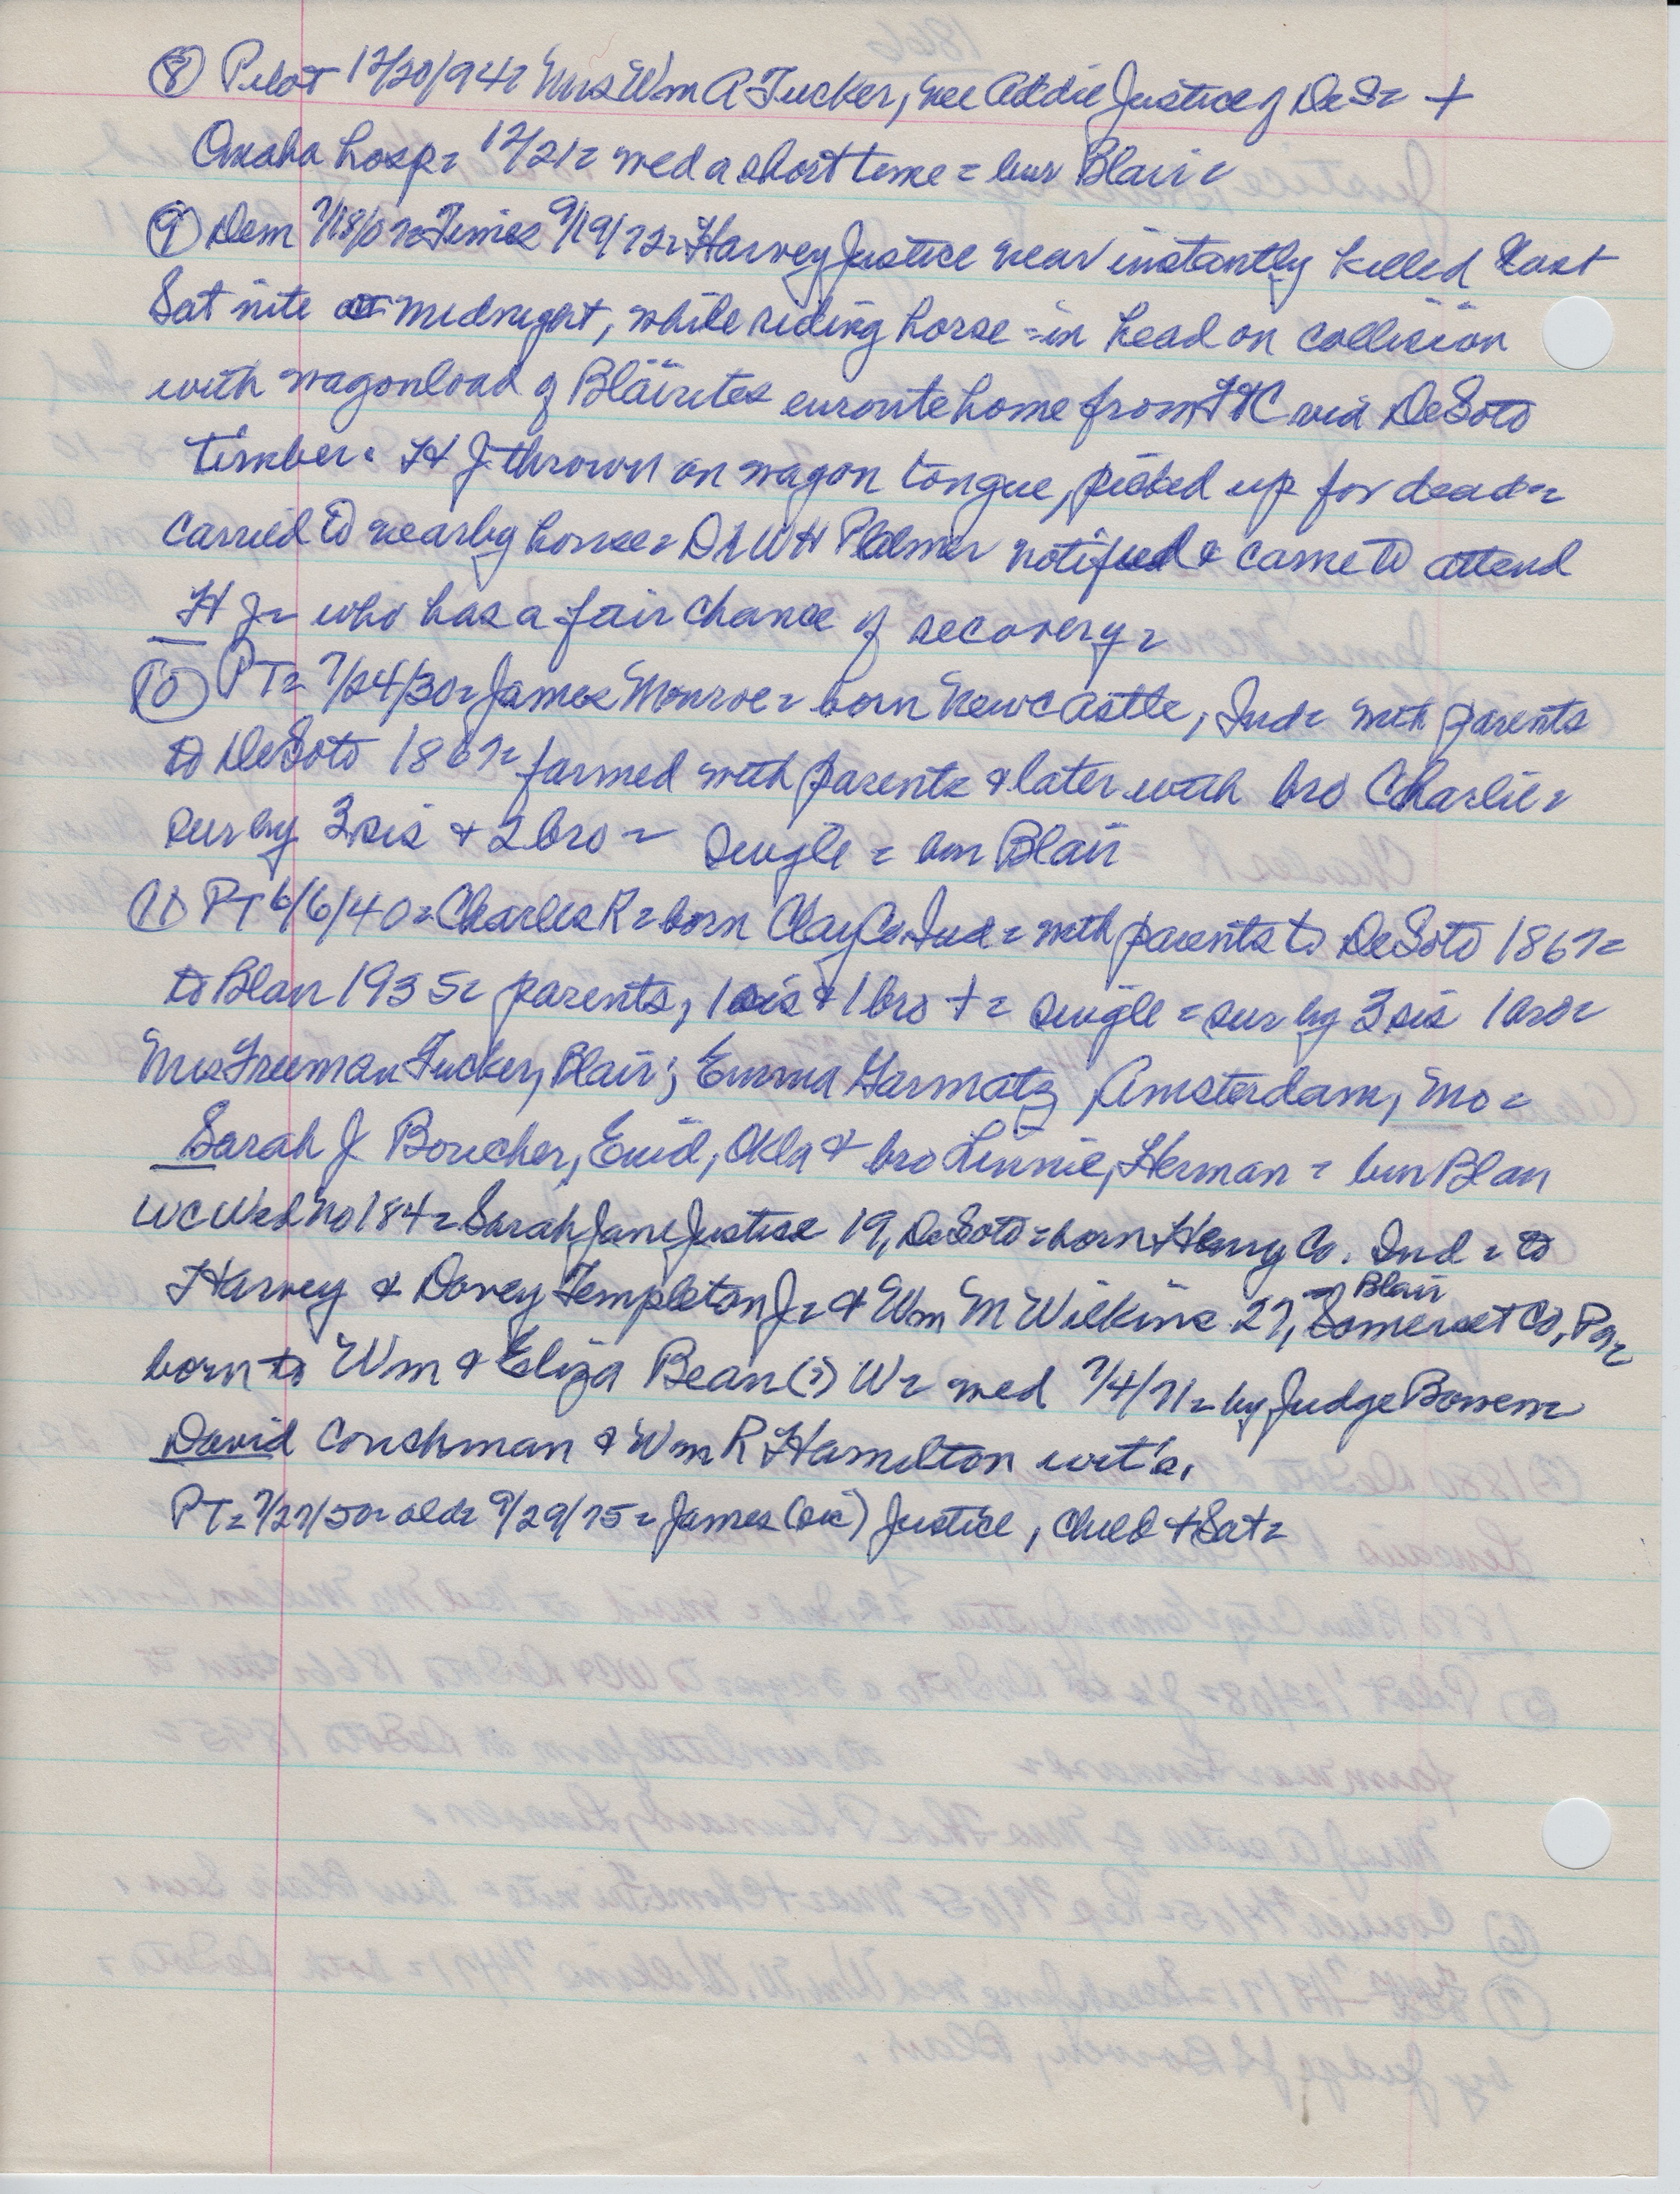 ⑧ Pilot 12/20/94= Mrs Wm A Tucker, nee Addie Justice of DeS= +
Omaha hosp= 12/21= med a short time = bur Blair =
⑨ Dem 7/18/07= Times 9/19/72= Harvey Justice near instantly killed last
Sat nite at midnight, while riding horse = in head on collision
with wagonload of Blairites enroute home from FtC via DeSoto
timber. HJ thrown on wagon tongue, picked up for dead=
carried to nearby house= Dr WH Palmer notified & came to attend
HJ= who has a fair chance of recovery=
⑩ PT= 7/24/30= James Monroe= born Newcastle, Ind= with parents
to DeSoto 1867= farmed with parents & later with bro Charlie=
sur by 3 sis & 2 bro = single = bur Blair
⑪ PT 6/6/40= Charles R= born Clay Co Ind= with parents to DeSoto 1867=
to Blair 1935= parents, 1 sis & 1 bro += single = sur by 3 sis 1 bro=
Mrs Freeman Tucker, Blair; Emma Garmatz, Amsterdam, Mo=
Sarah J Boucher, Enid, Okla & bro Linnie, Herman = bur Blair
WC Wed No 184= Sarah Jane Justice 19, DeSoto = born Henry Co. Ind = to
Harvey & Dovey Templeton J= & Wm M Wilkins 27, Somerset Co, Pa=
of Blair
born to Wm & Eliza Bean(?) W= med 7/4/71= by Judge Bowen=
David Couchman & Wm R Hamilton wit's.
PT= 7/27/50= old= 9/29/75= James (sic) Justice, child + Sat=